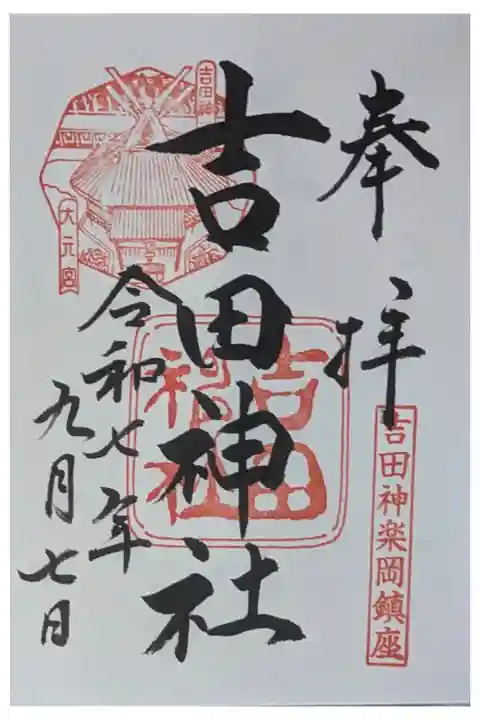 奉拝
吉田神楽岡鎮座
吉田神社
吉田神社
吉田神社
大元宮
令和七年
九月七日